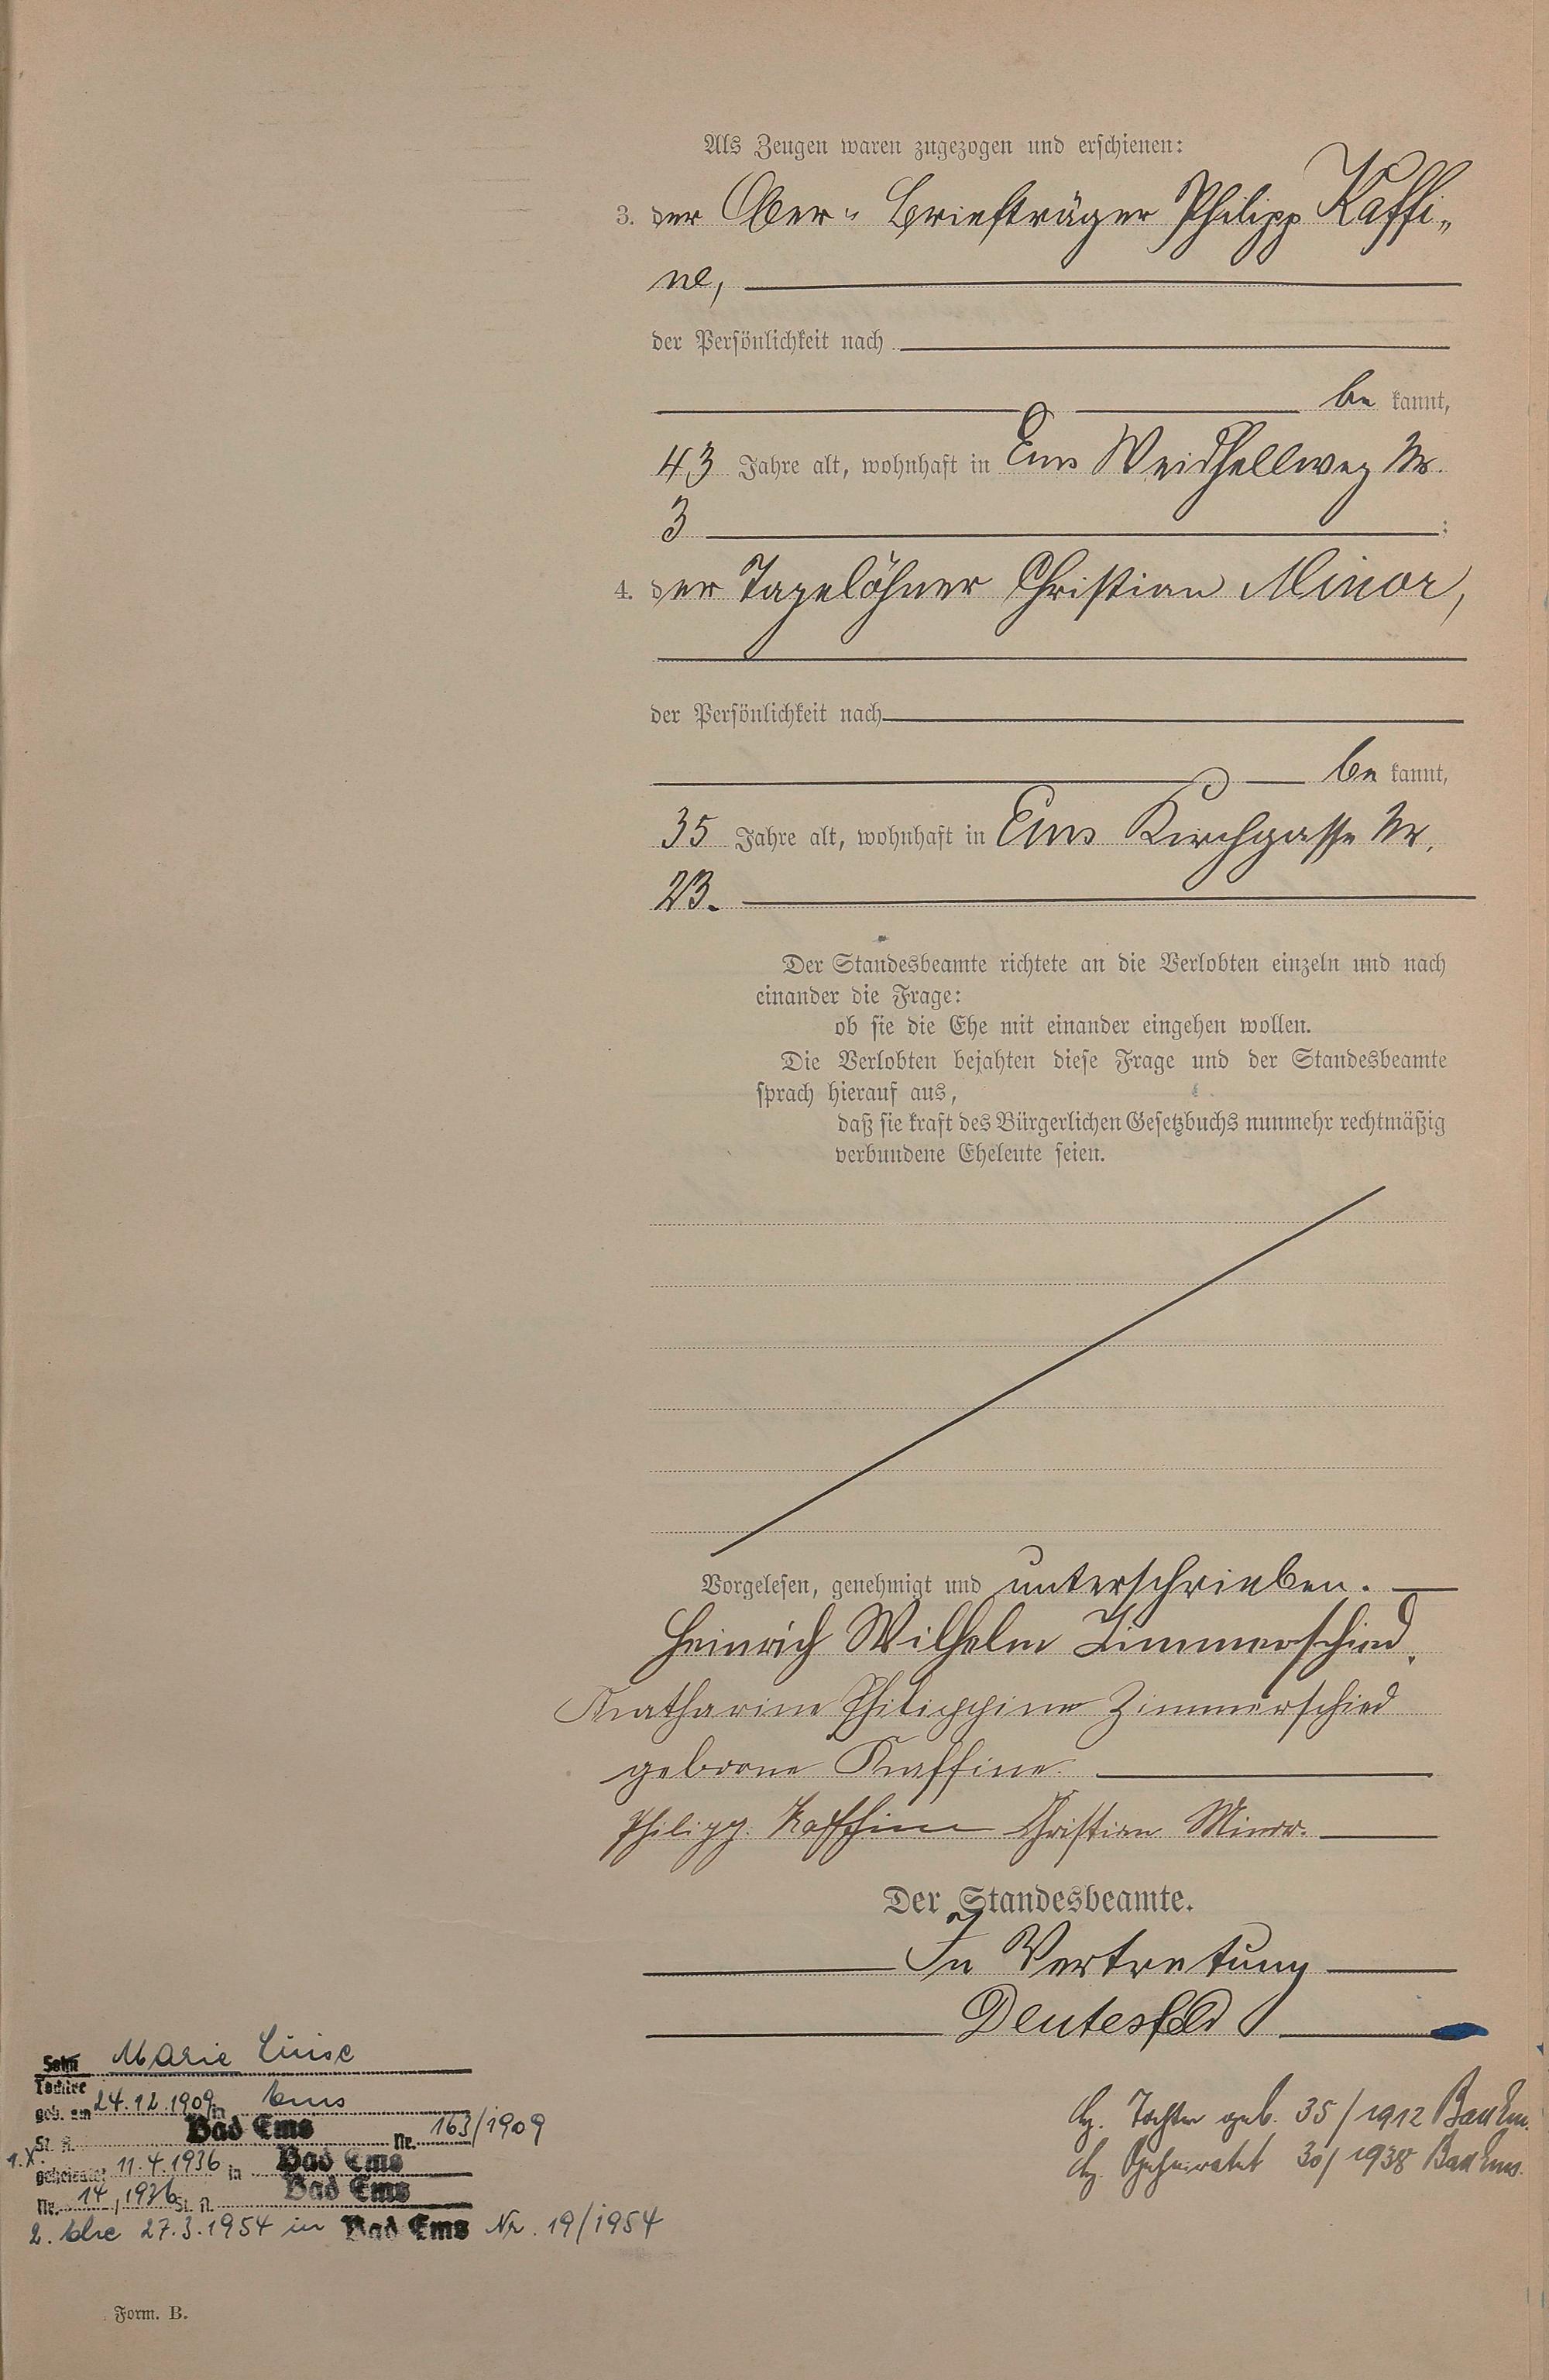 Als Zeugen waren zugezogen und erschienen:
3. der Ober- Briefträger Philipp Kaffi-
ne,
der Persönlichkeit nach
be kannt,
43 Jahre alt, wohnhaft in Ems Weidhellweg Nr.
3 ;
4. der Tagelöhner Christian Minor,
der Persönlichkeit nach
be kannt,
35 Jahre alt, wohnhaft in Ems Kirchgasse Nr.
23.
Der Standesbeamte richtete an die Verlobten einzeln und nach
einander die Frage:
ob sie die Ehe mit einander eingehen wollen.
Die Verlobten bejahten diese Frage und der Standesbeamte
sprach hierauf aus,
daß sie kraft des Bürgerlichen Gesetzbuchs nunmehr rechtmäßig
verbundene Eheleute seien.
Vorgelesen, genehmigt und unterschrieben.
Heinrich Wilhelm Zimmerschied.
Katharine Philippine Zimmerschied
geborne Kaffine
Philipp Kaffine Christian Minor.
Der Standesbeamte.
In Vertretung
Deutesfeld
Sohn Marie Luise
Tochter
geb. am 24.12.1909 in Ems
St. A. Bad Ems Nr. 163/1909
1.X. geheiratet 11.4.1936 in Bad Ems
Nr. 14/1936 St. A. Bad Ems
2. Ehe 27.3.1954 in Bad Ems Nr. 19/1954
Tochter geb. 35/1912 Bad Ems.
30/1938 Bad Ems.
Form. B.